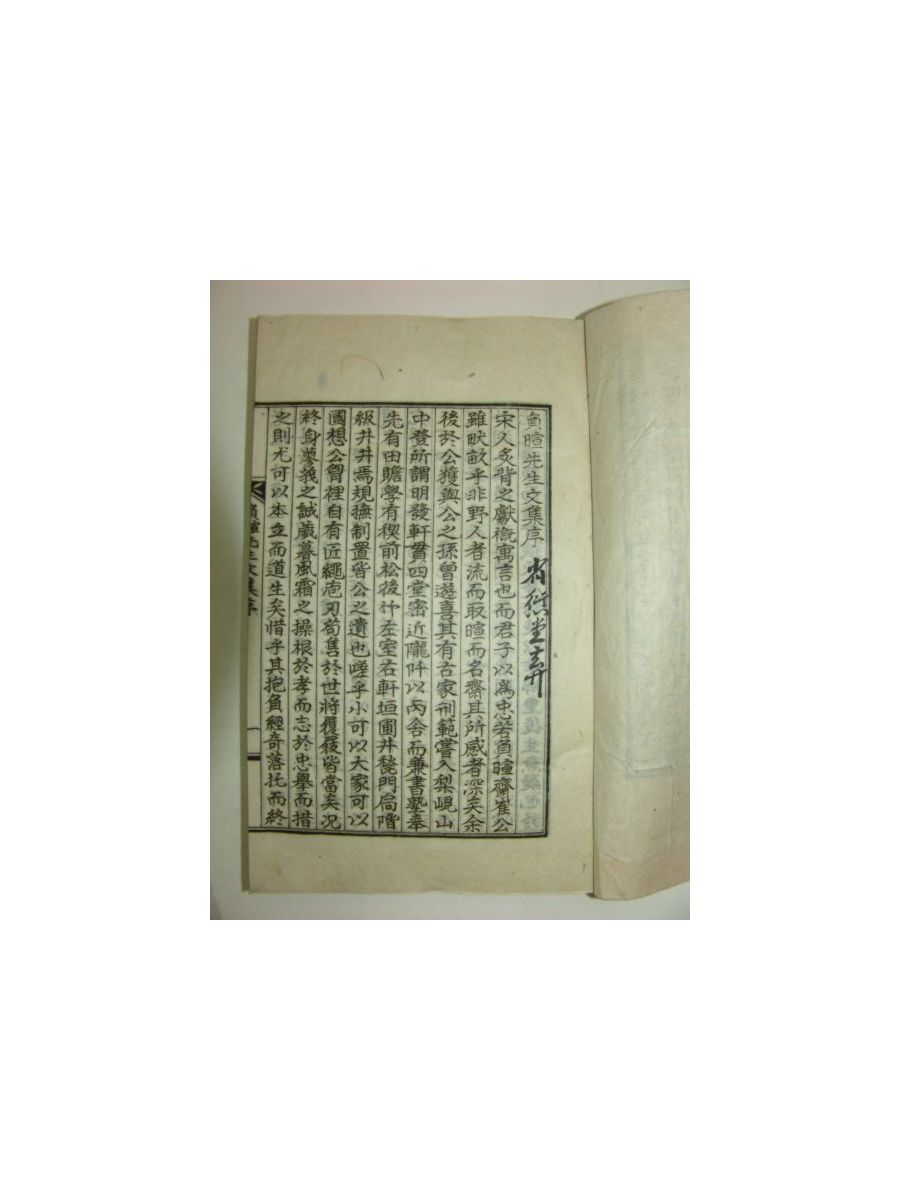 負暄先生文集序
宋人炙背之獻微寓言也而君子以爲忠若負暄齋崔公
雖畎畝乎非野人者流而取暄而名齋其所感者深矣余
後於公獲與公之孫曾遊喜其有古家刑範嘗入梨峴山
中登所謂明發軒貫四堂密近隴阡以丙舍而兼書塾奉
先有田贍學有稧前松後竹左室右軒垣圃井甃門扃階
級井井焉規撫制置皆公之遺也嗟乎小可以大家可以
國想公胷裡自有匠繩庖刃苟售於世將覆餗皆當矣況
終身蓼莪之誠歲暮風霜之操根於孝而志於忠舉而措
之則尤可以本立而道生矣惜乎其抱負經奇落托而終
負暄先生文集序
一